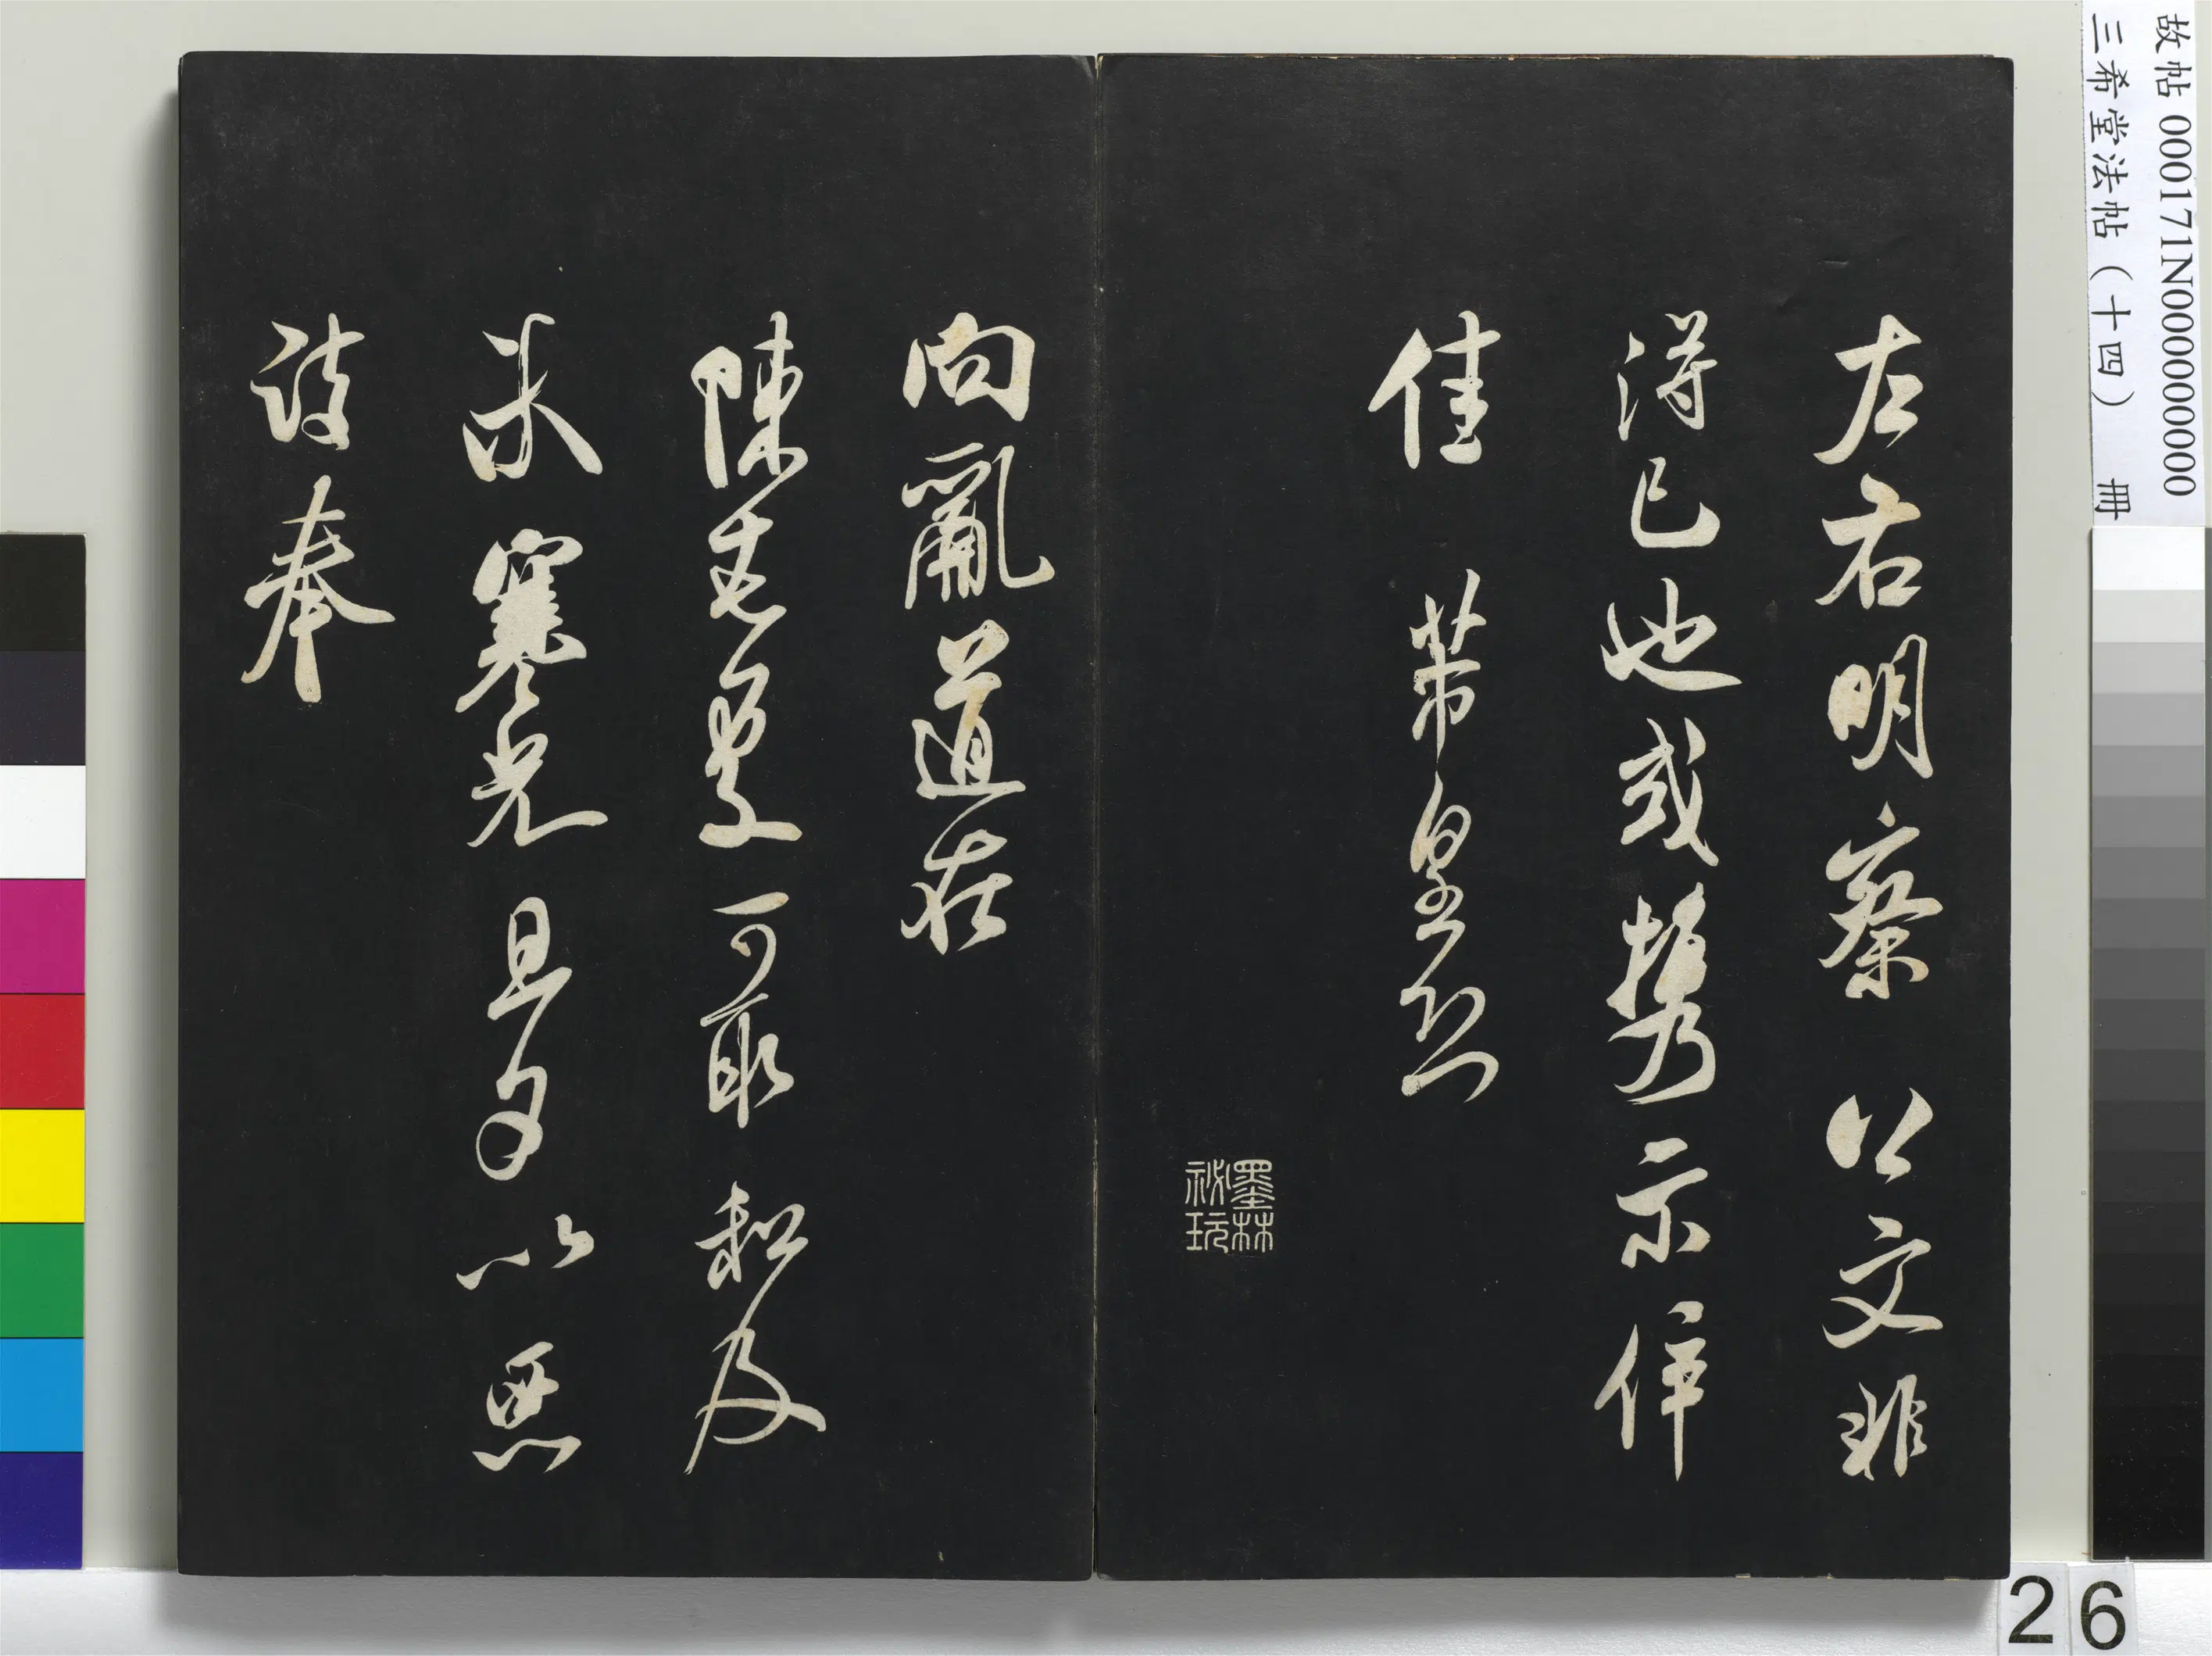 故帖 000171N000000000
三希堂法帖（十四） 冊
左右明察 公文非
得已也或攜示倅
佳 芾皇恐
墨林
祕玩
向亂道在
陳處可取及
寒光旦夕以惡
詩奉
26